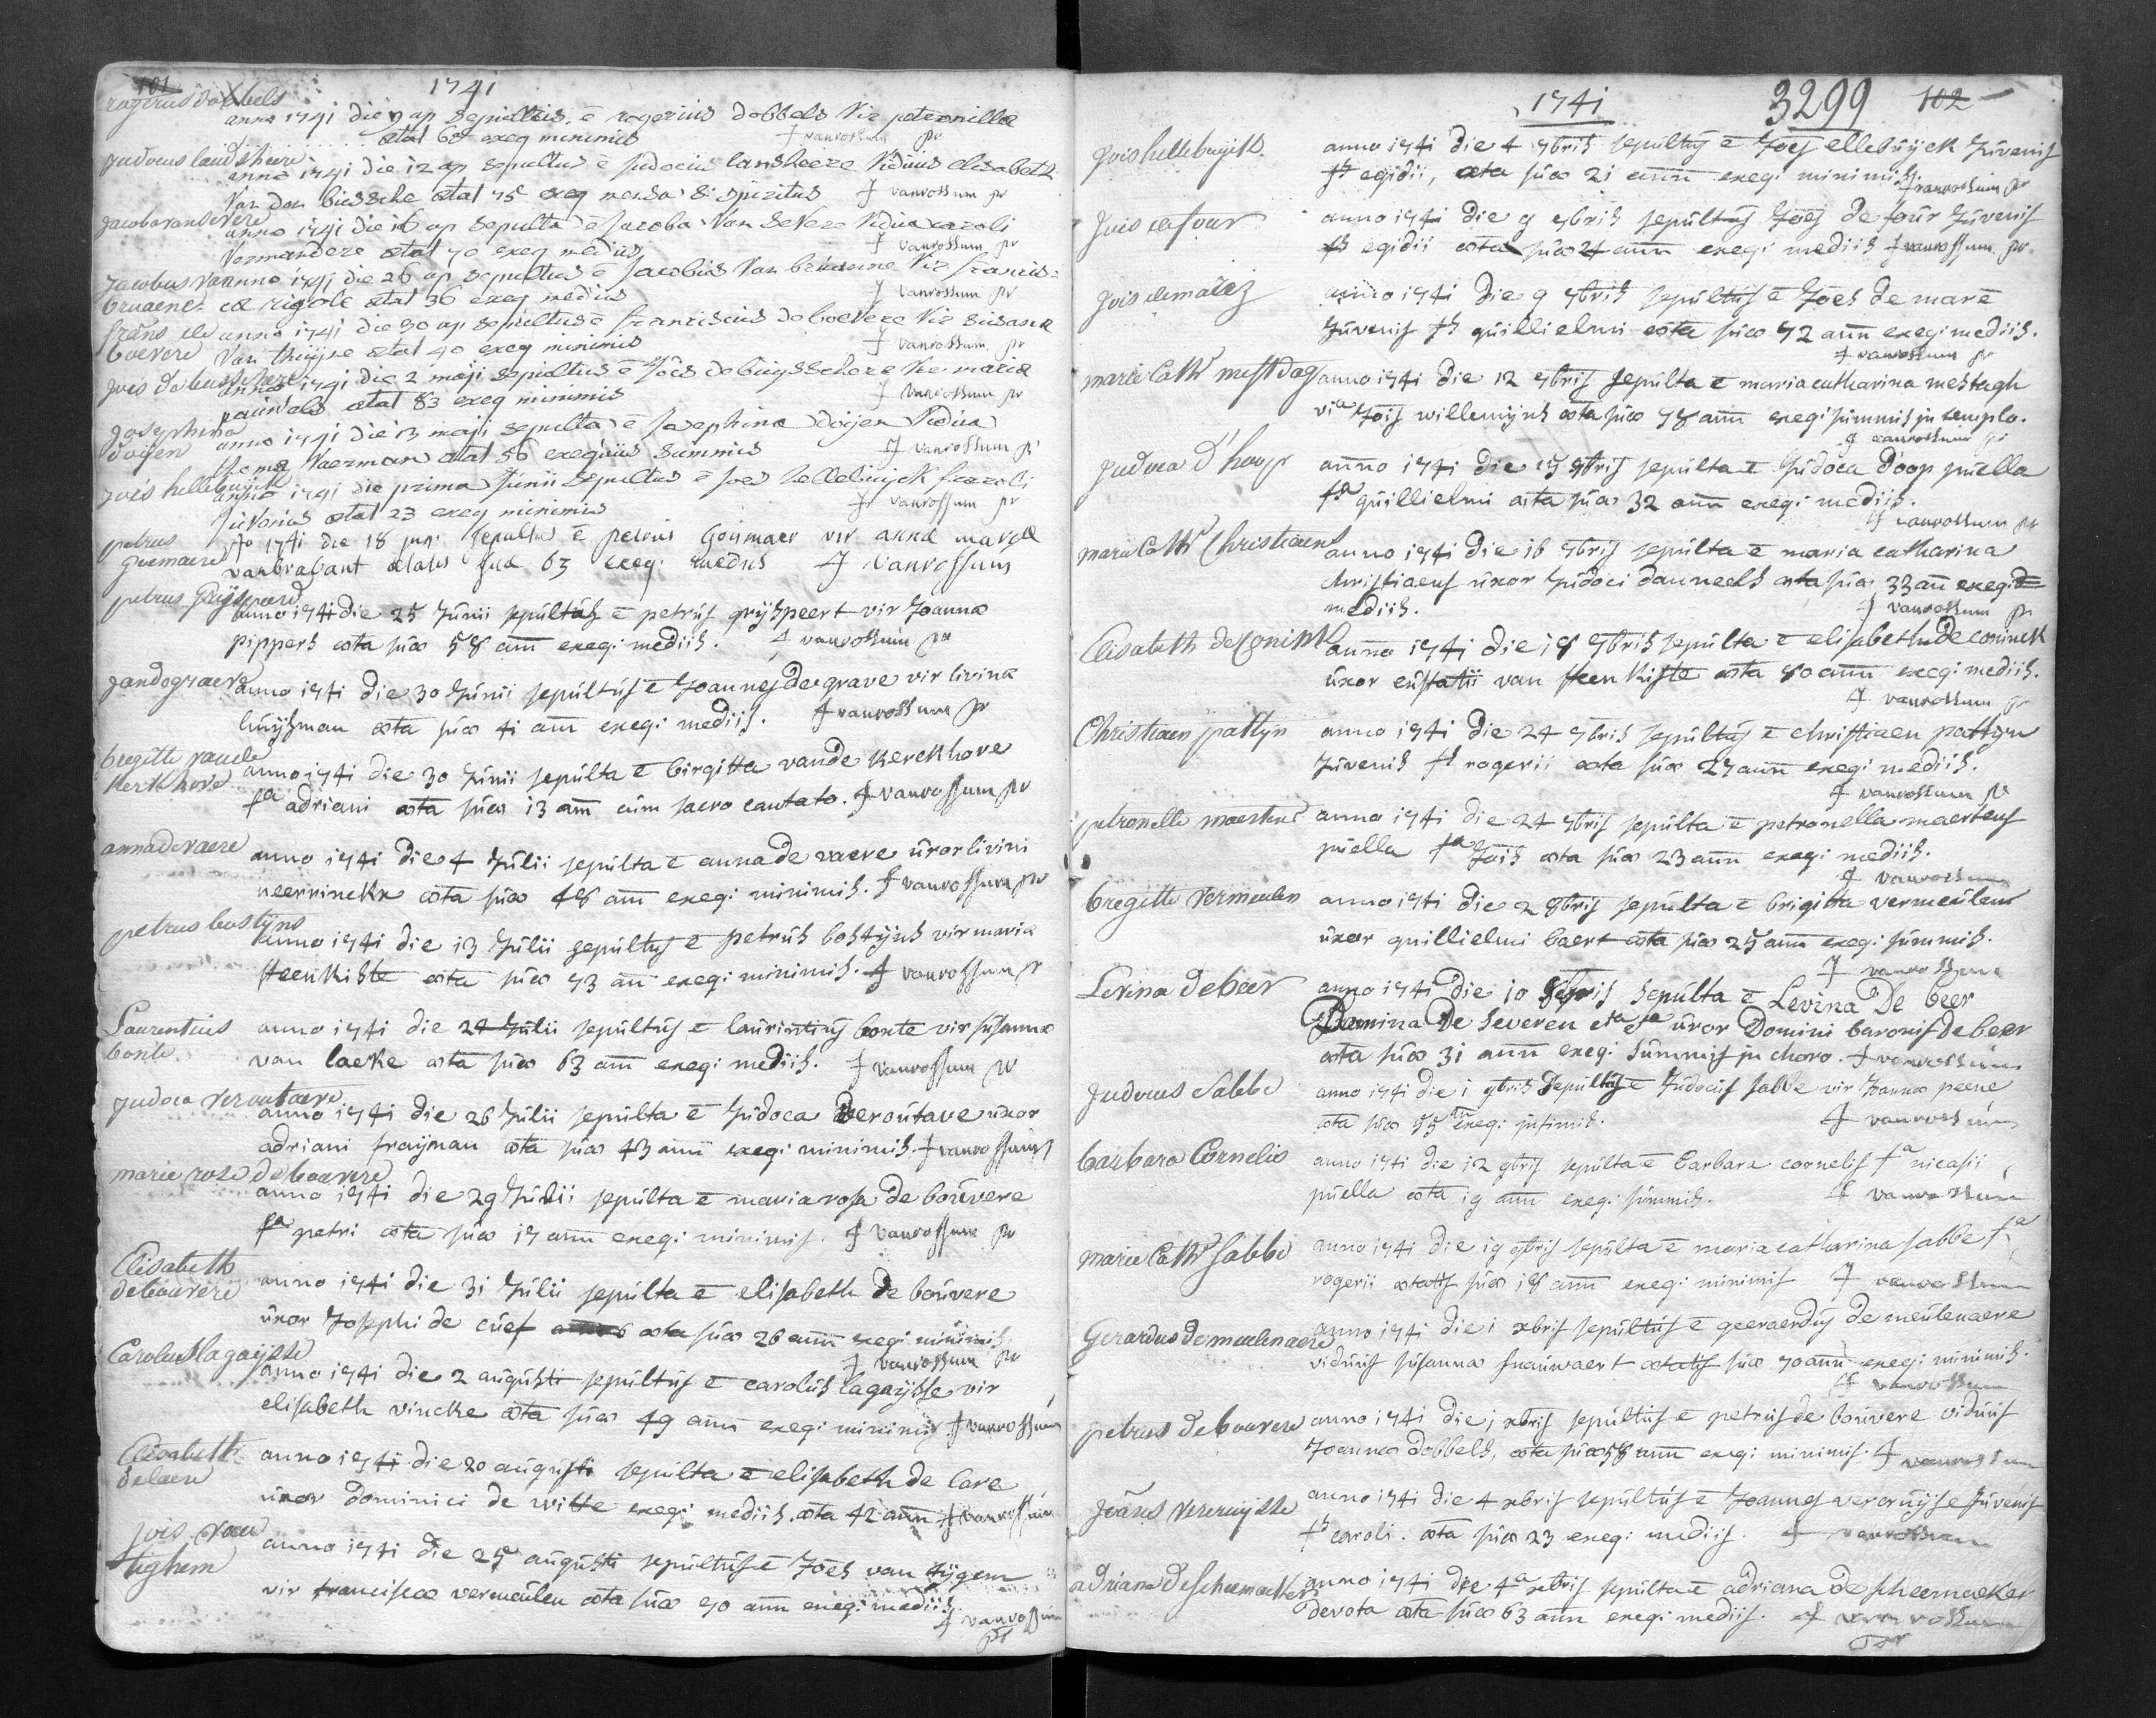 101
1741
rogerius dobbels
anno 1741 die 9 ap sepultus ē rogerius dobbels vir petronillæ
ætat 60 exeq minimis f vanrossum pr
judocus landsheere
anno 1741 die 12 ap sepultus ē judocus lansheere viduus elisabeth
van den biessche ætat 75 exeq mensa s: spiritus f vanrossum pr
jacoba vansevere
anno 1741 die 16 ap sepulta ē jacoba van severe vidua caroli
Vermandere ætat 70 exeq mediis f vanrossum pr
jacobus van
bruaene
anno 1741 die 26 ap sepultus ē jacobus van bruaene vir francis-
cæ rigole ætat 36 exeq mediis f vanrossum pr
frans de
boevere
anno 1741 die 30 ap sepultus ē franciscus de boevere vir susannæ
van thuyne ætat 40 exeq minimis f vanrossum pr
jois de busschere
anno 1741 die 2 maji sepultus ē joēs de buysschere vir mariæ
pauwels ætat 83 exeq minimis f vanrossum pr
josephina
doijen
anno 1741 die 13 maji sepulta ē josephina doijen vidua
thomæ Waerman ætat 56 exequiis summis f vanrossum pr
jois hellebuijck
anno 1741 die prima junii sepultus ē joēs hellebuijck f caroli
juvenis ætat 23 exeq minimis f vanrossum pr
petrus
goemaere
Ao 1741 die 18 jun: sepultus ē petrus Goumaer vir annæ mariæ
van brabant ætatis suæ 63 exeq: mediis f vanrossum
petrus grijspeerd
anno 1741 die 25 Junii sepultus ē petrus grijspeert vir Joannæ
pippers æta suæ 58 ann exeq: mediis. f vanrossum pr
jan de graeve
anno 1741 die 30 Junii sepultus ē Joannes de grave vir livinæ
huijsman æta suæ 41 ann exeq: mediis. f vanrossum pr
bregitte vande
Kerkhove
anno 1741 die 30 Junii sepulta ē birgitta vande kerckhove
fa adriani æta suæ 13 ann cum sacro cantato. f vanrossum pr
anna de vaere
anno 1741 die 4 Julii sepulta ē anna de vaere uxor livini
neerrinckx æta suæ 48 ann exeq: minimis. f vanrossum pr
petrus bostijns
anno 1741 die 13 Julii sepultus ē petrus bostijns vir mariæ
steenkiste æta suæ 73 an exeq: minimis. f vanrossum pr
Laurentius
bonte
anno 1741 die 24 Julii sepultus ē laurintius bonte vir susannæ
van lacke æta suæ 63 ann exeq: mediis. f vanrossum pr
judoca veroutaere
anno 1741 die 26 Julii sepulta ē Judoca Veroutave uxor
adriani fraijman æta suæ 43 ann exeq: minimis. f vanrossum
marie rose de bouvere
anno 1741 die 29 Julii sepulta ē maria rosa de bouvere
fa petri æta suæ 17 ann exeq: minimis. f vanrossum pr
Elisabeth
debouvere
anno 1741 die 31 Julii sepulta ē elisabeth de bouvere
uxor Josephi de cuef æta suæ 26 ann exeq: minimis.
f vanrossum pr
Carolus lagaijsse
anno 1741 die 2 augusti sepultus ē carolus lagaijsse vir
elisabeth vincke æta suæ 49 ann exeq: minimis f vanrossum
Elisabeth
delaere
anno 1741 die 20 augusti sepulta ē elisabeth de lare
uxor dominici de witte exeq: mediis. æta 42 ann f vanrossum
jois van
tighem
anno 1741 die 25 augusti sepultus ē Joēs van tijgem
vir franciscæ vermeulen æta suæ 70 ann exeq: mediis.
f vanrossum
pr
1741
3299 102
jois hellebuijck
anno 1741 die 4 7bris sepultus ē Joēs ellebuijck Juvenis
fs egidii, æta suæ 21 ann exeq: minimis. f vanrossum pr
jois defour
anno 1741 die 9 7bris sepultus Joēs de four Juvenis
fs egidii æta suæ 24 ann exeq: mediis f vanrossum pr
jois demarez
anno 1741 die 9 7bris sepultus ē Joēs de marē
Juvenis fs guillielmi æta suæ 72 ann exeq: mediis.
f vanrossum pr
marie Cathe mestdag
anno 1741 die 12 7bris sepulta ē maria catharina mestagh
via Jois willemijns æta suæ 78 ann exeq: summis in templo.
f vanrossum pr
judoca d'hoop
anno 1741 die 15 7bris sepulta ē Judoca Doop puella
fa guillielmi æta suæ 32 ann exeq: mediis.
f vanrossum pr
marie Cathe Christiaens
anno 1741 die 16 7bris sepulta ē maria catharina
christiaens uxor Judoci danneels æta suæ 33 an exeq:
mediis. f vanrossum pr
Elisabeth de Conink
anno 1741 die 18 7bris sepulta ē elisabetha De coninck
uxor eustatii van steenkiste æta 80 ann exeq: mediis.
f vanrossum pr
Christiaen pattyn
anno 1741 die 24 7bris sepultus ē christiaen pattijn
Juvenis fs rogerii æta suæ 27 ann exeq: mediis.
f vanrossum pr
petronelle maertens
anno 1741 die 24 7bris sepulta ē petronella maertens
puella fa Jois æta suæ 23 ann exeq: mediis.
f vanrossum
bregitte vermeulen
anno 1741 die 2 8bris sepulta ē brigitta vermeulens
uxor guillielmi baert æta suæ 25 ann exeq: summis.
f vanrossum
Levina debeer
anno 1741 die 10 8bris sepulta ē Levina De beer
Domina De Severen uxor Domini baronis de beer
æta suæ 31 ann exeq: summis in choro. f vanrossum
Judocus Sabbe
anno 1741 die 1 9bris Sepultus ē Judocus sabbe vir Joannæ peene
æta suæ 55 an exeq: infimis. f vanrossum
barbara Cornelis
anno 1741 die 12 9bris sepulta ē barbara cornelis fa nicasii
puella æta 19 ann exeq: summis. f vanrossum
marie Cathe Sabbe
anno 1741 die 19 9bris sepulta ē maria catharina sabbe fa
rogerii ætatis suæ 18 ann exeq: minimis f vanrossum
Gerardus de meulenaere
anno 1741 die 1 xbris sepultus ē geeraerdus de meulenaere
viduus susanna snauwaert ætatis suæ 70 ann exeq: minimis.
f vanrossum
petrus debouvere
anno 1741 die 1 xbris sepultus ē petrus de bouvere viduus
Joannæ dobbels, æta suæ 58 ann exeq: minimis. f vanrossum
Joānes vercruijsse
anno 1741 die 4 xbris sepultus ē Joannes vercruijse Juvenis
fs caroli. æta suæ 23 exeq: mediis. f vanrossum
adriana descheemaeker
anno 1741 die 4a xbris sepulta ē adriana de scheemaeker
Devota æta suæ 63 ann exeq: mediis. f vanrossum
pr